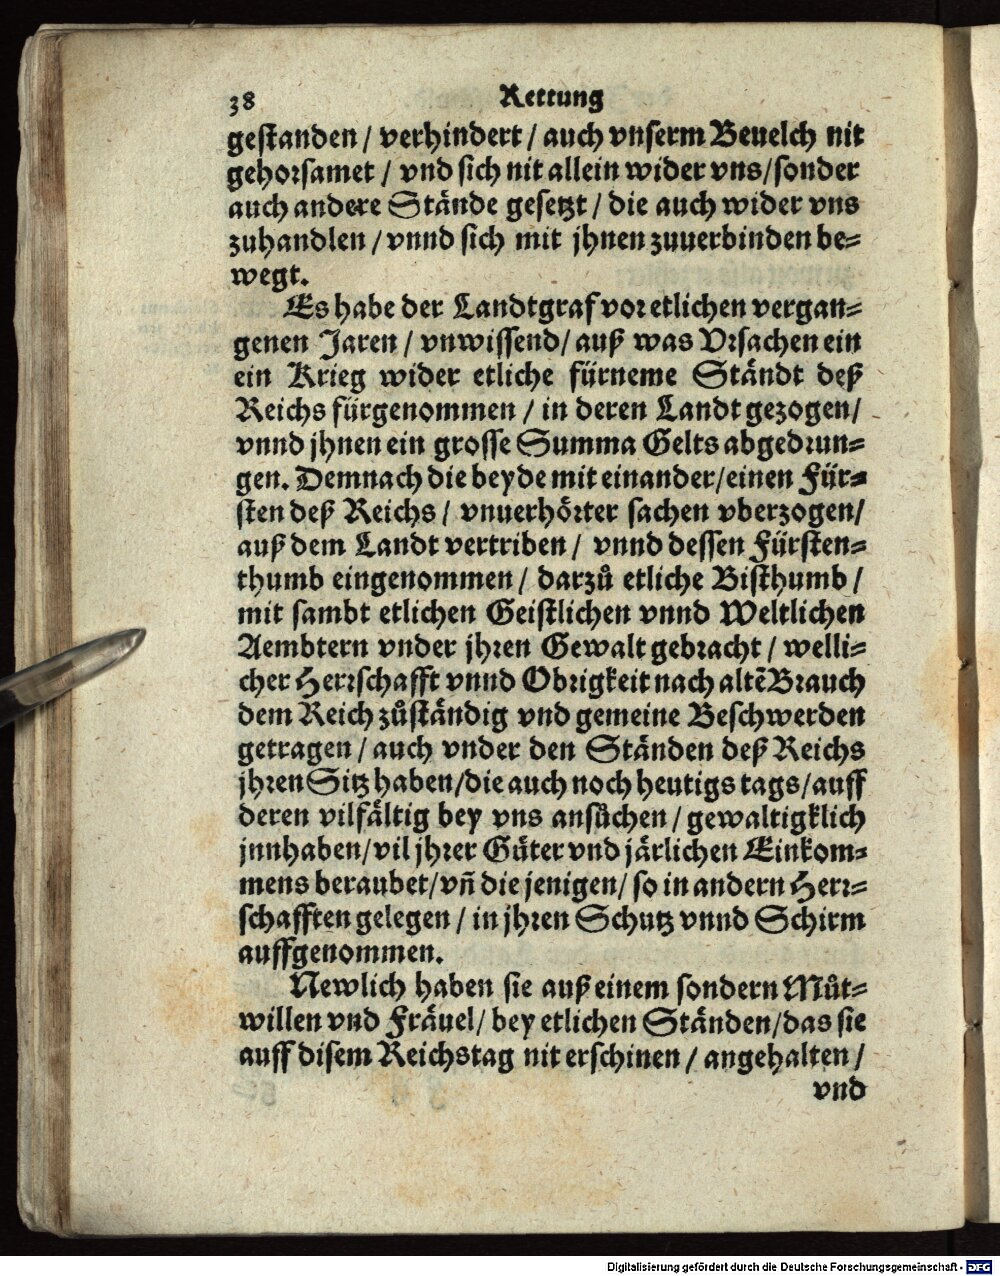 38 Rettung
gestanden / verhindert / auch vnserm Beuelch nit
gehorsamet / vnd sich nit allein wider vns / sonder
auch andere Stände gesetzt / die auch wider vns
zuhandlen / vnnd sich mit jhnen zuuerbinden be-
wegt.
Es habe der Landtgraf vor etlichen vergan-
genen Jaren / vnwissend / auß was Vrsachen ein
ein Krieg wider etliche fürneme Ständt deß
Reichs fürgenommen / in deren Landt gezogen /
vnnd jhnen ein grosse Summa Gelts abgedrun-
gen. Demnach die beyde mit einander / einen Für-
sten deß Reichs / vnuerhörter sachen vberzogen /
auß dem Landt vertriben / vnnd dessen Fürsten-
thumb eingenommen / darzů etliche Bisthumb /
mit sambt etlichen Geistlichen vnnd Weltlichen
Aembtern vnder jhren Gewalt gebracht / welli-
cher Herrschafft vnnd Obrigkeit nach altẽ Brauch
dem Reich zůständig vnd gemeine Beschwerden
getragen / auch vnder den Ständen deß Reichs
jhren Sitz haben / die auch noch heutigs tags / auff
deren vilfältig bey vns ansůchen / gewaltigklich
jnnhaben / vil jhrer Güter vnd järlichen Einkom-
mens beraubet / vñ die jenigen / so in andern Herr-
schafften gelegen / in jhren Schutz vnnd Schirm
auffgenommen.
Newlich haben sie auß einem sondern Můt-
willen vnd Fräuel / bey etlichen Ständen / das sie
auff disem Reichstag nit erschinen / angehalten /
vnd
Digitalisierung gefördert durch die Deutsche Forschungsgemeinschaft - DFG